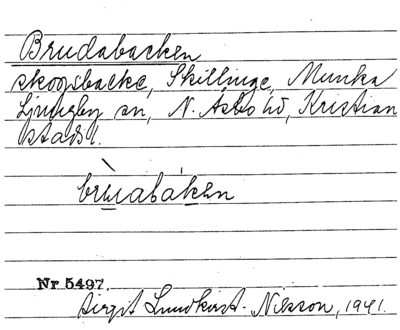 Brudabacken
skogsbacke, Skillinge, Munka
Ljungby sn, N. Åsbo hd, Kristian
stads l.
brùabáken
Nr 5497.
Birgit Lundkvist-Nilsson, 1941.